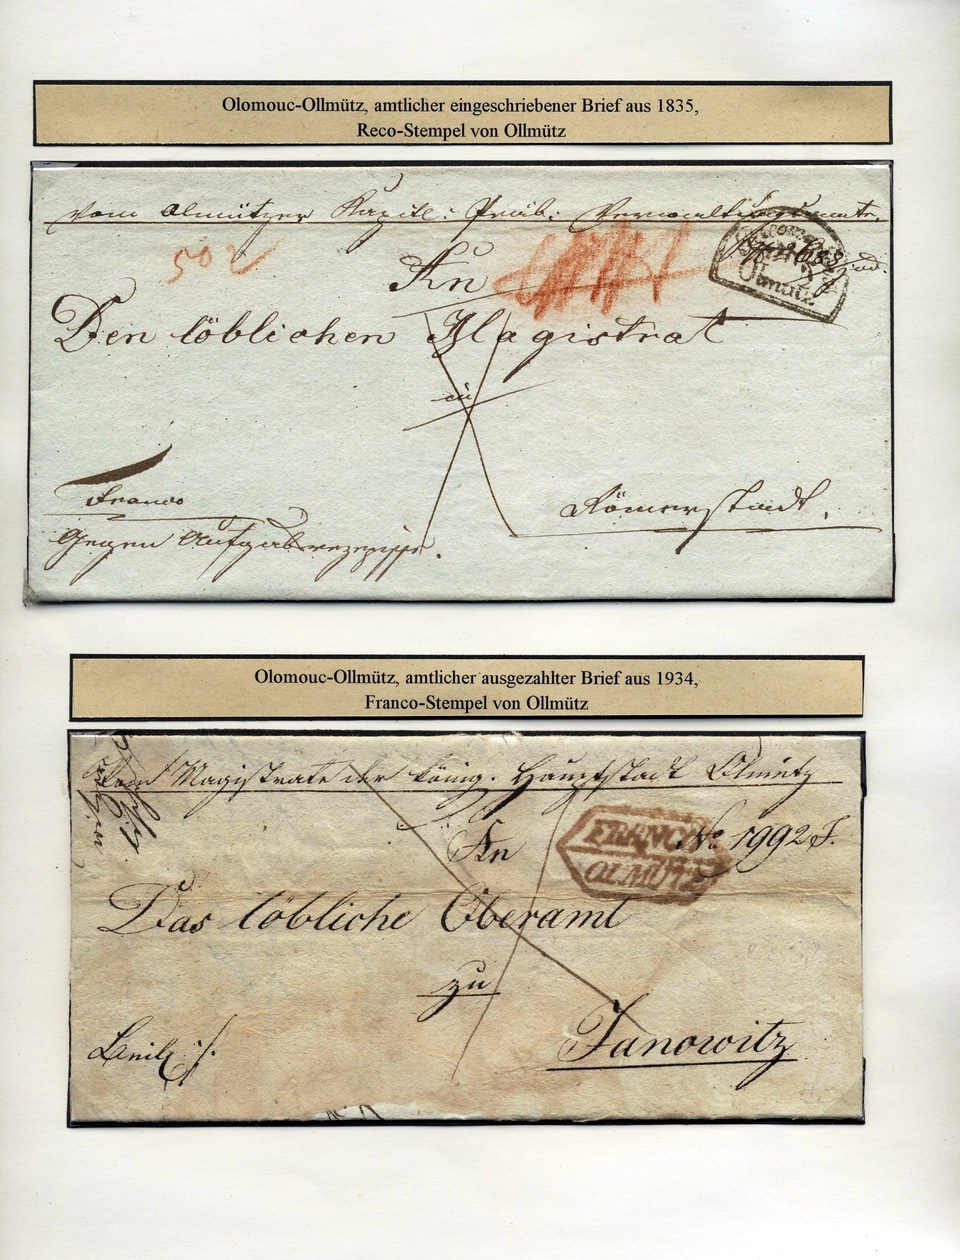 Olomouc-Ollmütz, amtlicher eingeschriebener Brief aus 1835,
Reco-Stempel von Ollmütz
Vom Olmützer Kapitl: Präb: Verwaltungsamte,
502
An
Den löblichen Magistrat
zu
Olmütz
Franco
Römerstadt.
Gegen Aufgabsrezepisse.
Olomouc-Ollmütz, amtlicher ausgezahlter Brief aus 1934,
Franco-Stempel von Ollmütz
Vom Magistrate der könig. Hauptstadt Olmütz
An
FRANCO
OLMÜTZ
No 1992 J.
Das löbliche Oberamt
zu
Janowitz